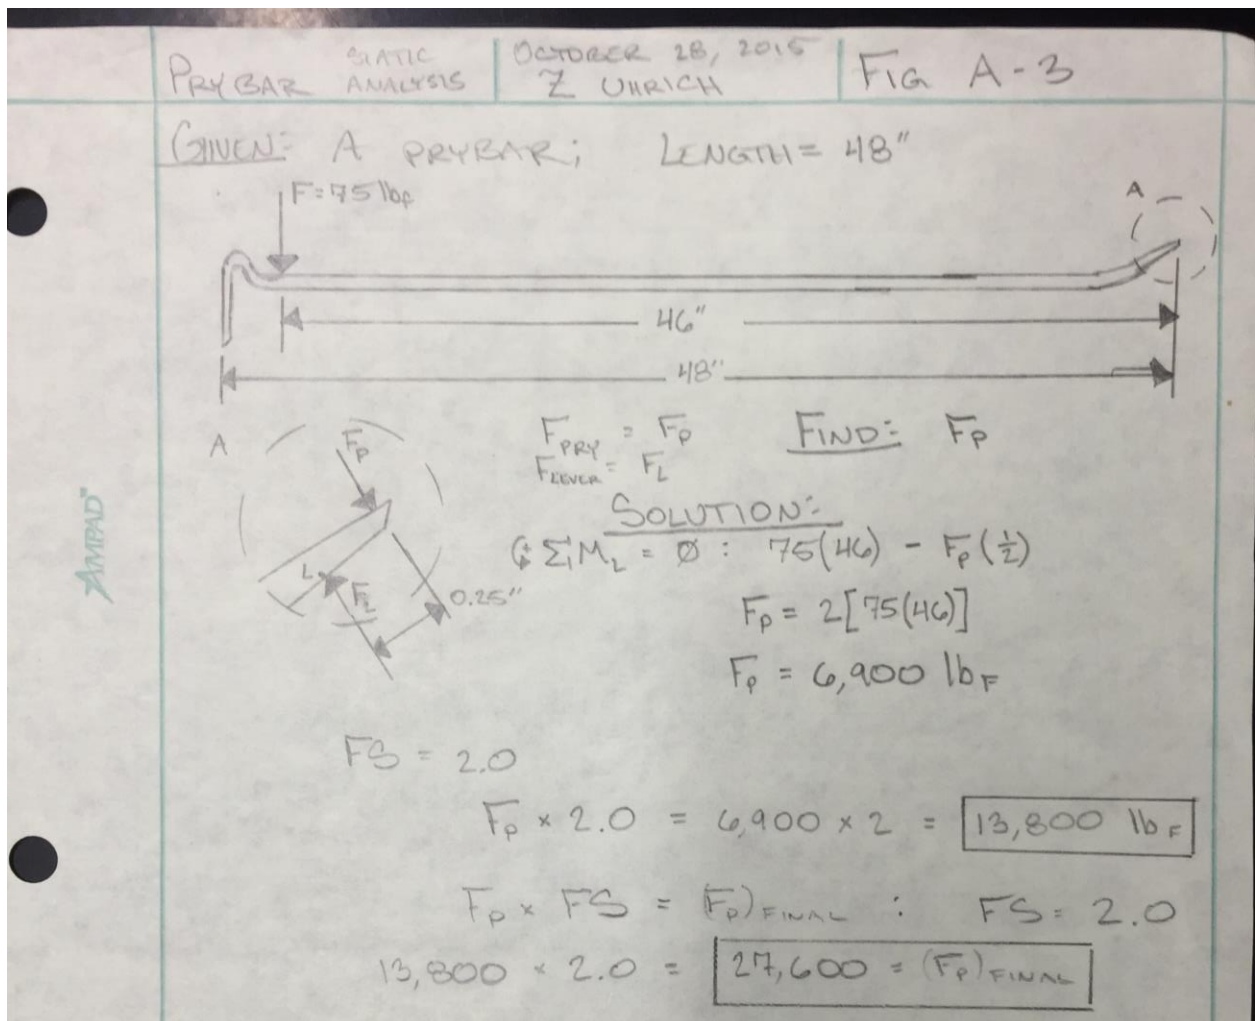 PRYBAR STATIC ANALYSIS
OCTOBER 28, 2015
Z UHRICH
FIG A-3
GIVEN: A PRYBAR; LENGTH = 48"
F=75 lbf
A
46"
48"
A
FP
L
FL
0.25"
FPRY = FP
FLEVER = FL
FIND: FP
SOLUTION:
↻+ ΣML = Ø : 75(46) - FP(½)
FP = 2[75(46)]
FP = 6,900 lbF
FS = 2.0
FP × 2.0 = 6,900 × 2 = 13,800 lbF
FP × FS = (FP)FINAL : FS = 2.0
13,800 × 2.0 = 27,600 = (FP)FINAL
AMPAD™